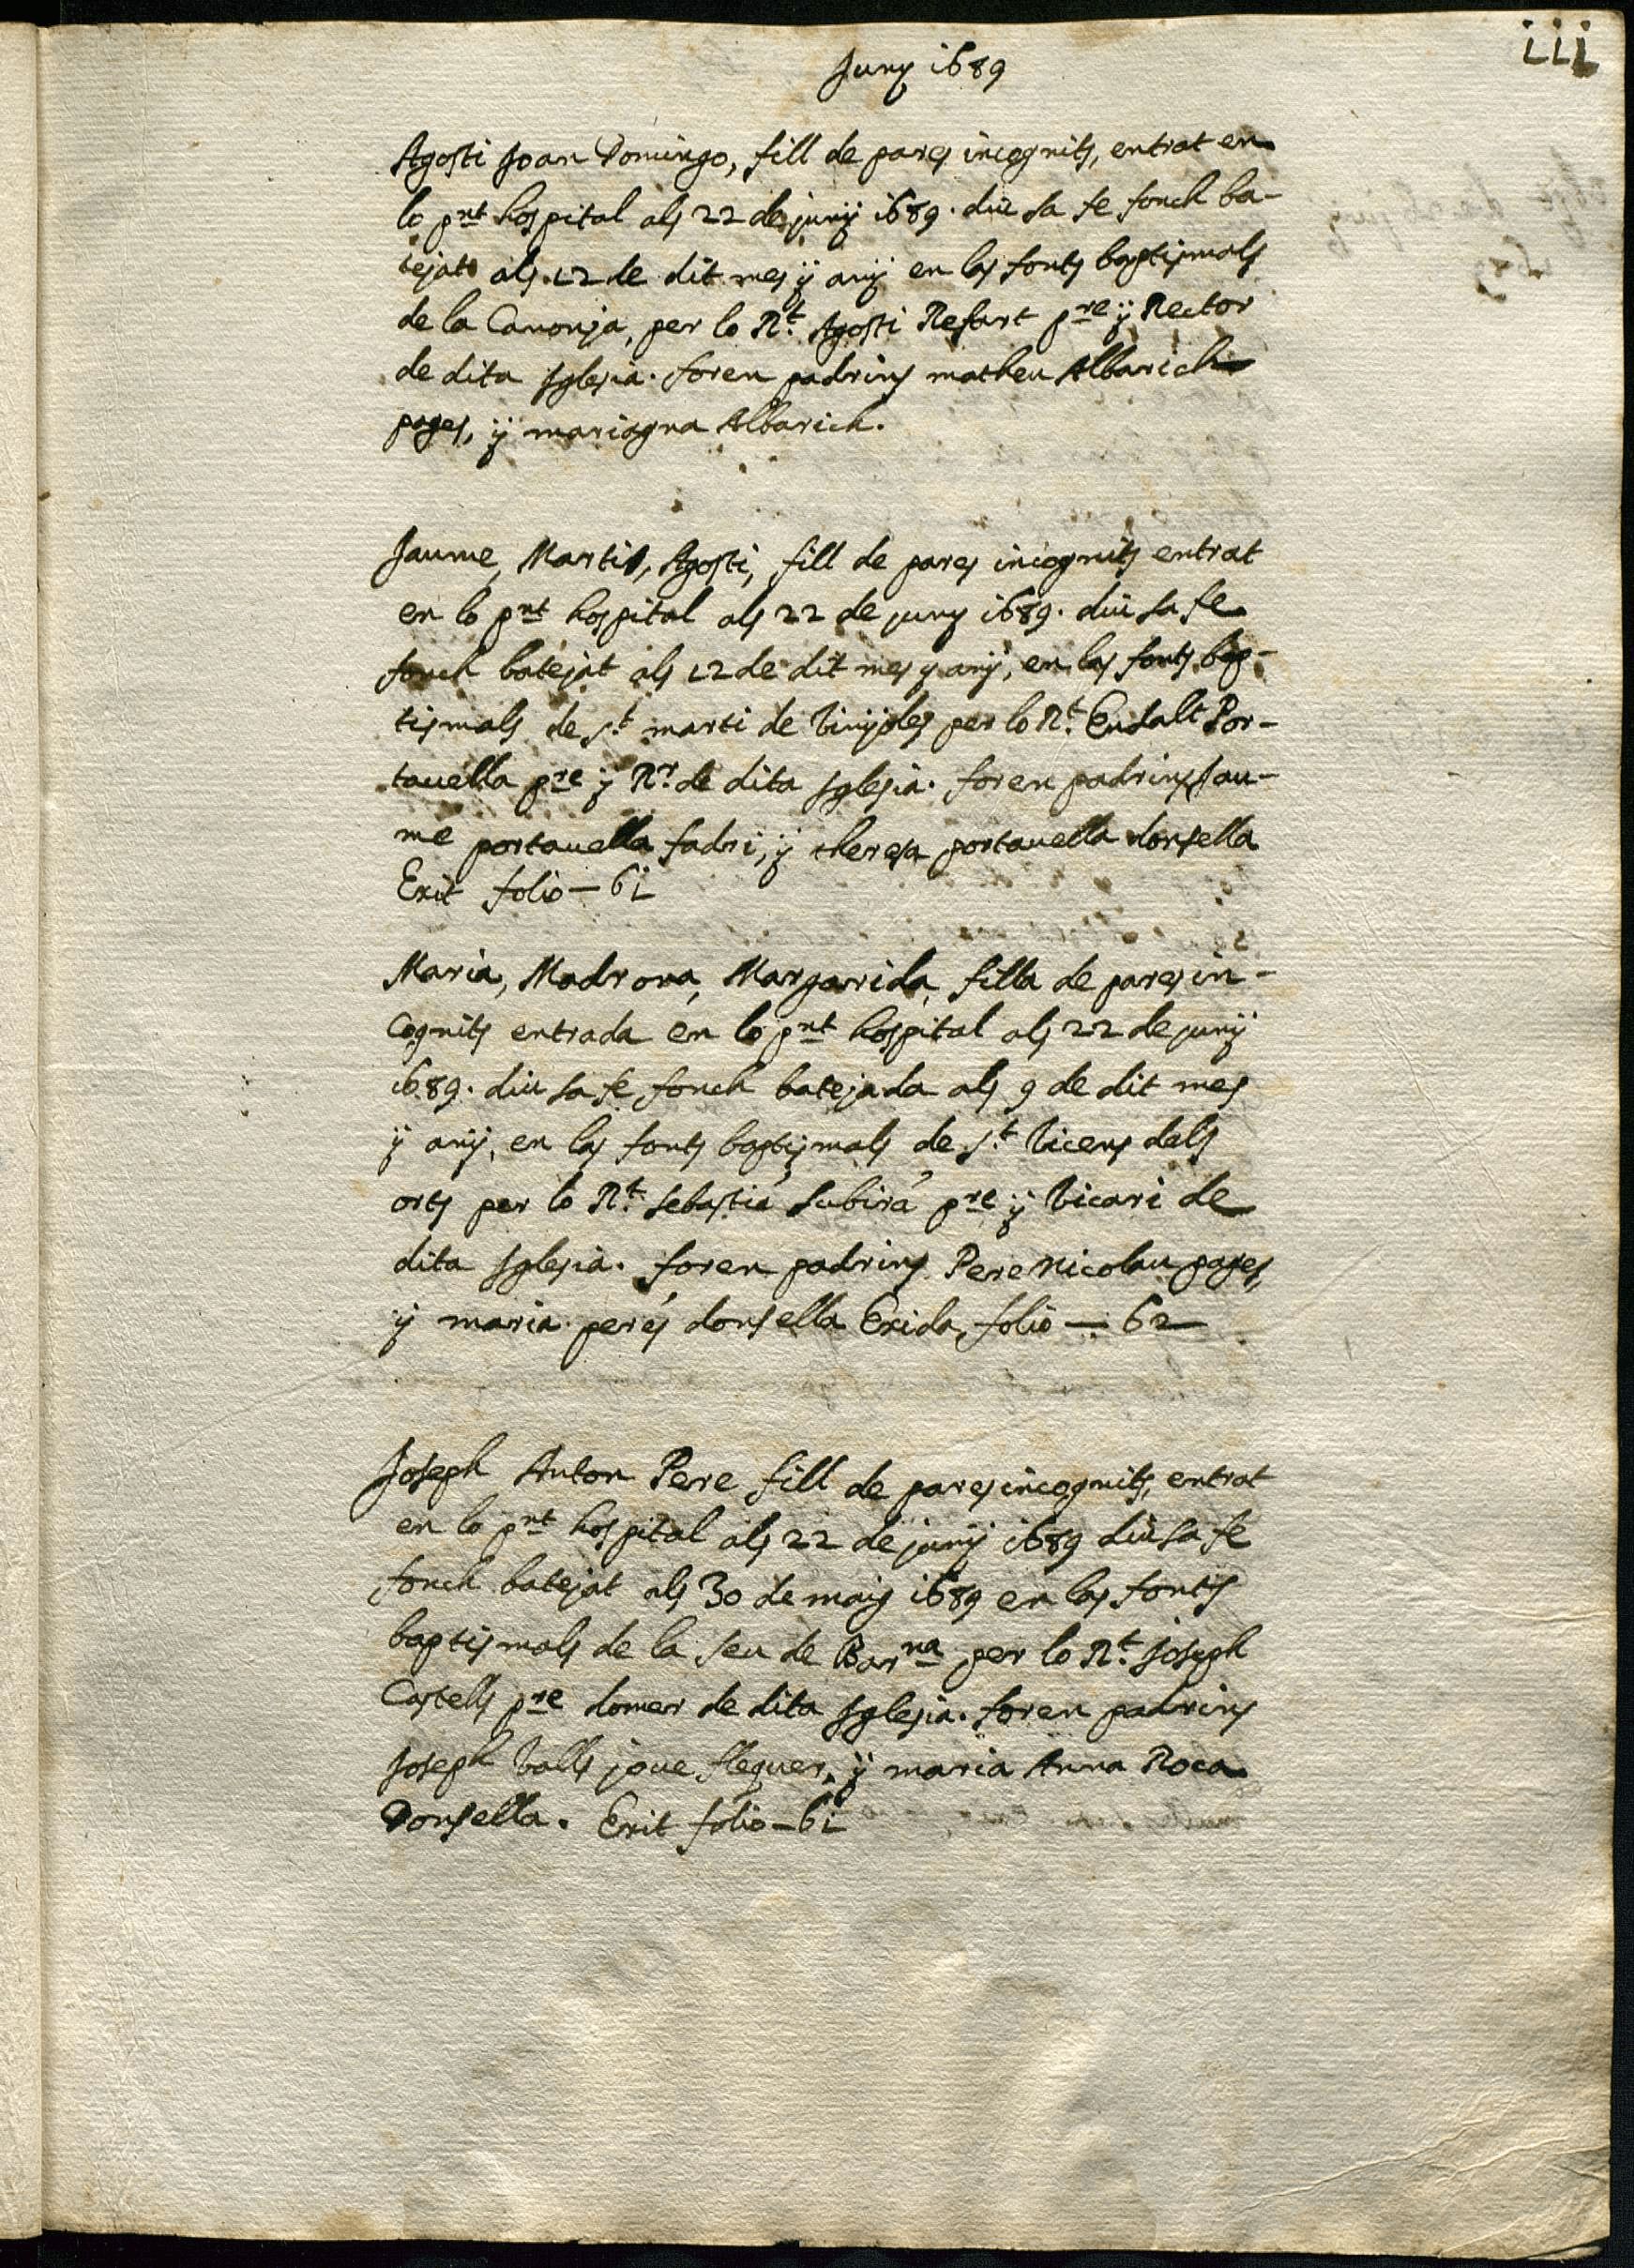 111
Juny 1689
Agosti Joan Domingo, fill de pares incognits, entrat en
lo pnt hospital als 22 de juny 1689. diu sa fe fonch ba-
tejat als 12 de dit mes ÿ anÿ en las fonts baptismals
de la Canonja, per lo Rt. Agosti Refart pre ÿ Rector
de dita Iglesia. foren padrins matheu Albarich
pages, ÿ mariagna Albarich.
Jaume, Marti, Agosti, fill de pares incognits entrat
en lo pnt hospital als 22 de juny 1689. diu sa fe
fonch batejat als 12 de dit mes y anÿ, en las fonts bap-
tismals de st. marti de Vinÿoles per lo Rt. Eudalt Por-
tauella pre ÿ Rr. de dita Iglesia. foren padrins Jau-
me portauella fadri, ÿ theresa portauella donsella
Exit folio — 61
Maria, Madrona, Margarida, filla de pares in-
cognits entrada en lo pnt hospital als 22 de junÿ
1689. diu sa fe fonch batejada als 9 de dit mes
ÿ anÿ, en las fonts baptismals de st. Vicens dels
orts per lo Rt. Sebastiá Subirá pre ÿ Vicari de
dita Iglesia. foren padrins Pere Nicolau pages,
ÿ maria perés donsella Exida, folio — 62
Joseph Anton Pere fill de pares incognits, entrat
en lo pnt hospital als 22 de junÿ 1689 diu sa fe
fonch batejat als 30 de maig 1689 en las fonts
baptismals de la seu de Barna per lo Rt. Joseph
Castells pre domer de dita Iglesia. foren padrins
Joseph Valls joue flequer, ÿ maria Anna Roca
Donsella. Exit folio — 61